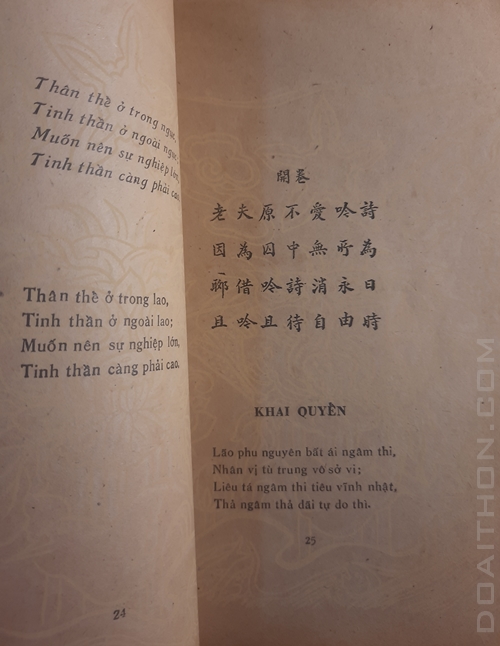 Thân thể ở trong ngục,
Tinh thần ở ngoài ngục
Muốn nên sự nghiệp lớn,
Tinh thần càng phải cao
Thân thể ở trong lao,
Tinh thần ở ngoài lao;
Muốn nên sự nghiệp lớn,
Tinh thần càng phải cao.
24
開卷
老夫原不愛吟詩
因為囚中無所為
聊借吟詩消永日
且吟且待自由時
KHAI QUYỀN
Lão phu nguyên bất ái ngâm thi,
Nhân vị tù trung vô sở vi;
Liêu tá ngâm thi tiêu vĩnh nhật,
Thả ngâm thả đãi tự do thì.
25
DOAITHON.COM